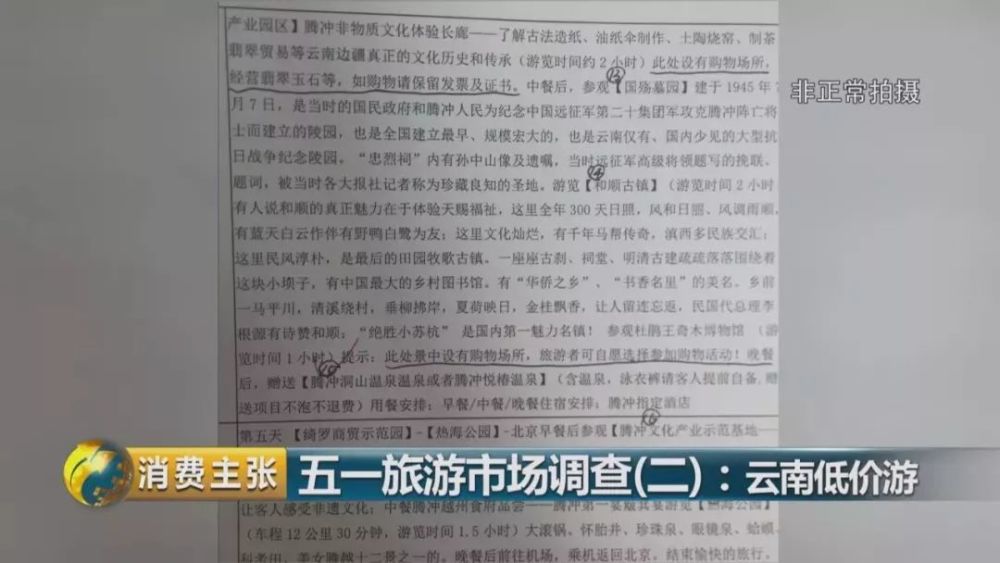 产业园区】腾冲非物质文化体验长廊——了解古法造纸、油纸伞制作、土陶烧窑、制茶
翡翠贸易等云南边疆真正的文化历史和传承（游览时间约2小时）此处设有购物场所，
经营翡翠玉石等，如购物请保留发票及证书。中餐后，参观【国殇墓园】建于1945年7
⑬
非正常拍摄
月7日，是当时的国民政府和腾冲人民为纪念中国远征军第二十集团军攻克腾冲阵亡将
士而建立的陵园，也是全国建立最早、规模宏大的，也是云南仅有、国内少见的大型抗
日战争纪念陵园。“忠烈祠”内有孙中山像及遗嘱，当时远征军高级将领题写的挽联、
⑭
题词，被当时各大报社记者称为珍藏良知的圣地。游览【和顺古镇】（游览时间2小时
有人说和顺的真正魅力在于体验天赐福祉，这里全年300天日照，风和日丽、风调雨顺，
有蓝天白云作伴有野鸭白鹭为友；这里文化灿烂，有千年马帮传奇，滇西多民族交汇；
这里民风淳朴，是最后的田园牧歌古镇。一座座古刹、祠堂、明清古建疏疏落落围绕着
这块小坝子，有中国最大的乡村图书馆。有“华侨之乡”、“书香名里”的美名。乡前
一马平川，清溪绕村，垂柳拂岸，夏荷映日，金桂飘香，让人留连忘返，民国代总理李
根源有诗赞和顺：“绝胜小苏杭” 是国内第一魅力名镇！ 参观杜鹃王奇木博物馆 （游
览时间1小时）提示：此处景中设有购物场所，旅游者可自愿选择参加购物活动！晚餐
⑮
后，赠送【腾冲洞山温泉温泉或者腾冲悦椿温泉】（含温泉，泳衣裤请客人提前自备，赠
送项目不泡不退费）用餐安排：早餐/中餐/晚餐住宿安排：腾冲指定酒店
⑯
第五天 【绮罗商贸示范园】-【热海公园】-北京早餐后参观【腾冲文化产业示范基地——
消费主张
五一旅游市场调查(二)：云南低价游
让客人感受非遗文化；中餐腾冲越州食府品尝——腾冲第一宴
游览【热海公园】
（车程12公里30分钟，游览时间1.5小时）大滚锅、怀胎井、珍珠泉、眼镜泉、蛤蟆
美女腾越十二景之一的。晚餐后前往机场，乘机返回北京，结束愉快的旅行。